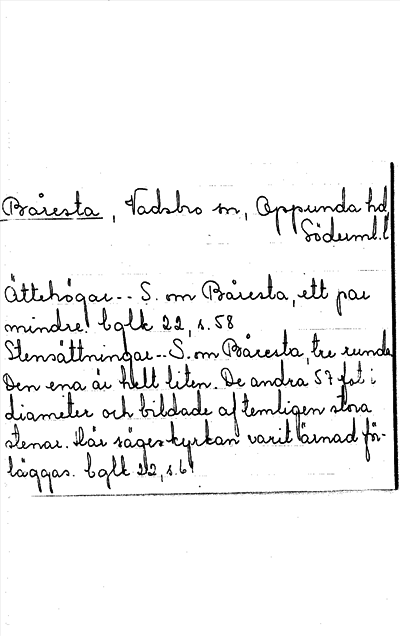 Båresta, Vadsbro sn, Oppunda hd
Söderml.l
Ättehögar-- S. om Båresta, ett par
mindre. bglk 22, s. 58
Stensättningar-- S. om Båresta, tre runda
Den ena är helt liten. De andra 57 fot i
diameter och bildade af temligen stora
stenar. Här säges kyrkan varit ärnad för-
läggas. bglk 22, s. 61